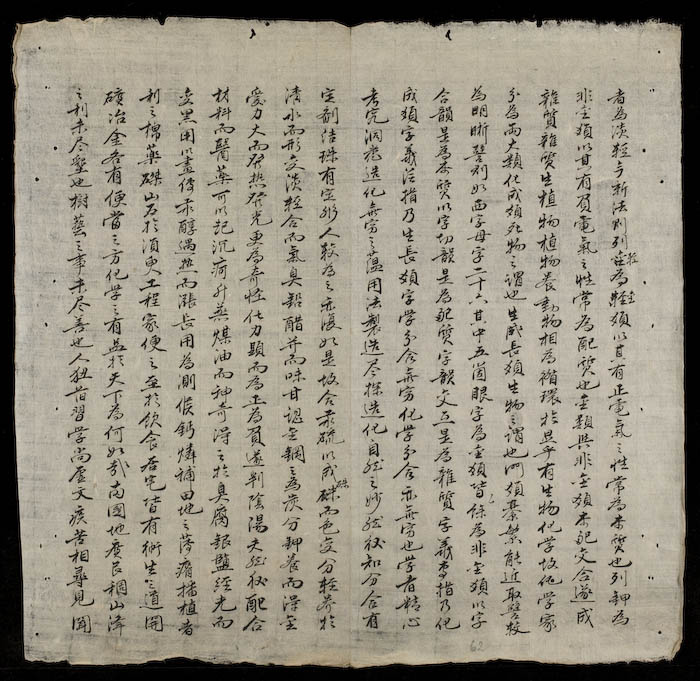 者為淡輕今新法則列為類以其有正電氣之性常為本質也列鉀為
非金類以其有負電氣之性常為配質也金類與非金類本配交合遂成
雜質雜質生植物植物養動物相為循環於是乎有生物化學故化學家
分為兩大類化成類死物之謂也生成長類生物之謂也門類綦繁能近取譬較
為明晰譬則如西字母字二十六其中五箇眼字為金類皆餘為非金類以字
合韻是為本質以字切韻是為配質字韻交互是為雜質字義專指乃化
成類字義泛指乃生長類字學分合無窮化學分合亦無窮也學者精心
考究洞悉造化無窮之蘊用法製造尽探造化自然之妙然後知分合有
定劑結珠有定形人為之亦復如是故合汞硫以成硃而色变分輕养於
清水而形变淡輕合而氣臭鉛醋并而味甘認金之為炭分鉀养而得金
愛力大而發熱發光更為奇性化力顯而為正為負遂判陰陽夫然後配合
材料而醫藥可以起沉疴升蒸煤油而神奇得之於臭腐銀鹽經光而
变黑用以畫像汞醇遇熱而漲長用為測候鈣燐補田地之薄瘠播植者
利之棉藥磔山石於須臾工程家便之至於飲食居宅皆有衛生之道開
礦冶金各有便當之方化學之有益於天下為何如哉南國地廣民稠山澤
之利未尽墾也樹藝之事未尽善也人狃舊習學尚虛文疾苦相尋見聞
62